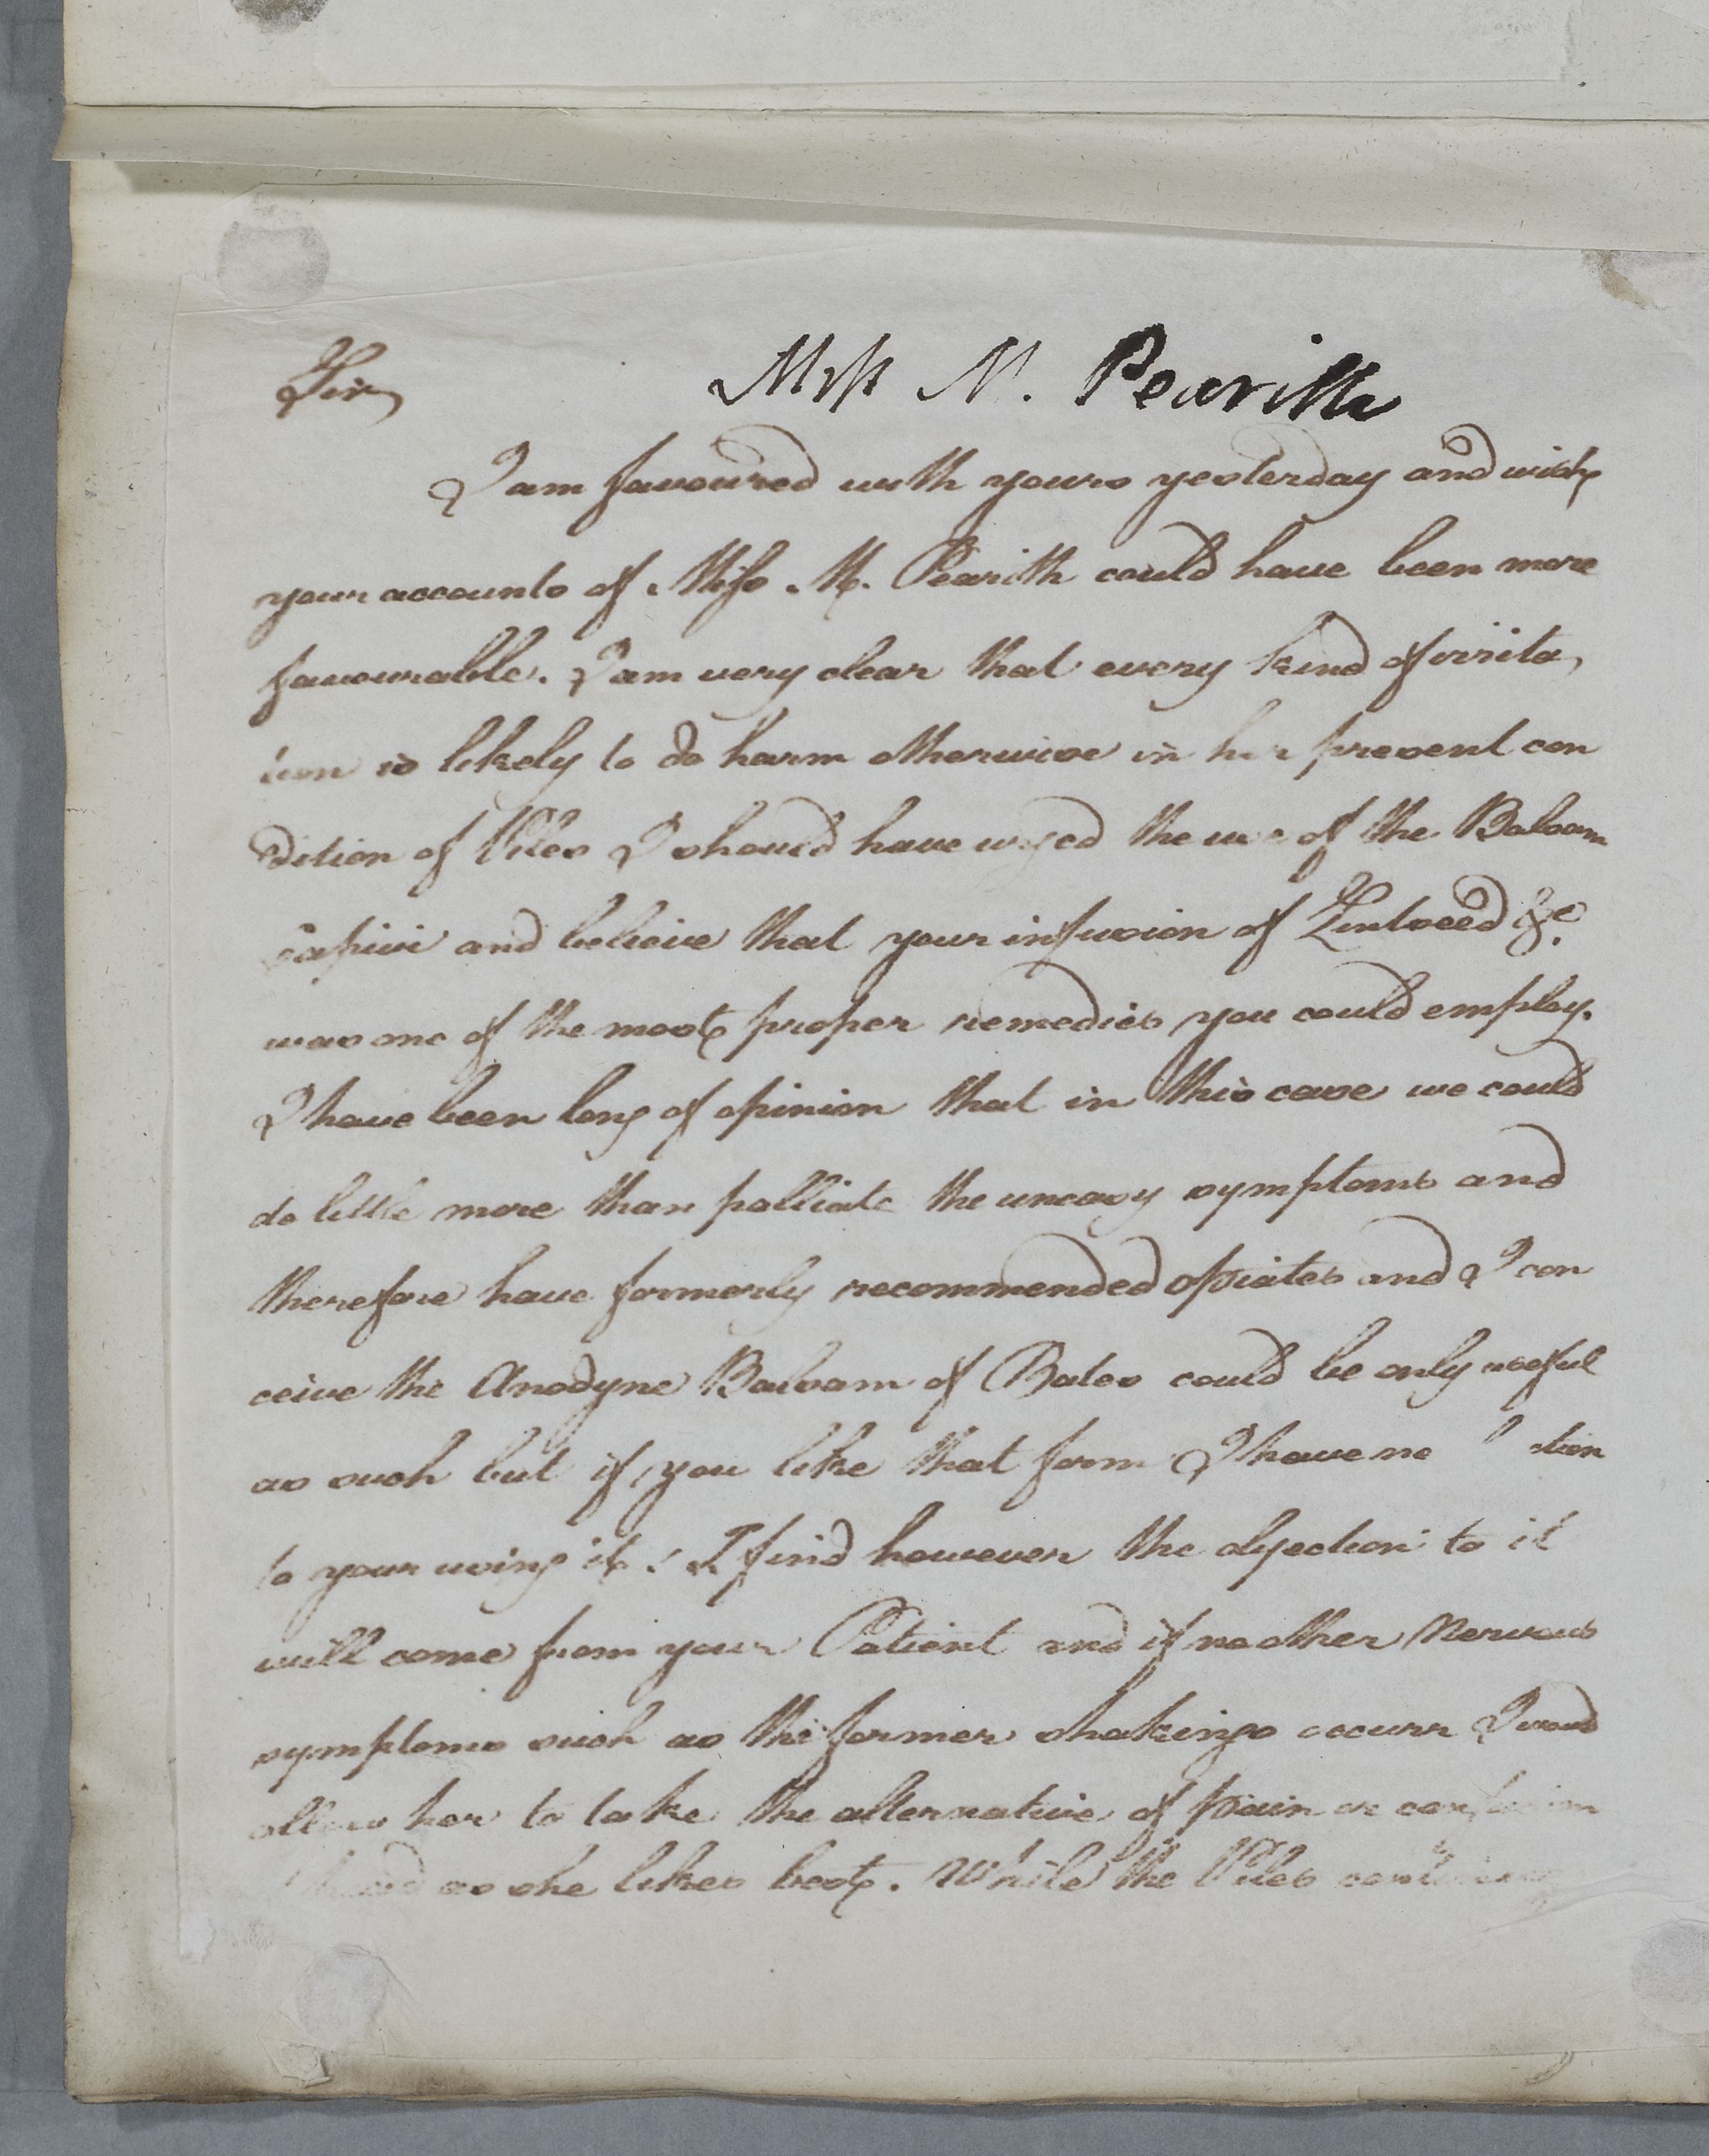 Sir,
Miss N. Pearith
I am favoured with yours yesterday and wish
your accounts of Miss M. Pearith could have been more
favourable. I am very clear that every kind of irrita,
tion is likely to do harm otherwise in her present con
dition of Piles I should have urged the use of the Balsam
capivi and beleive that your infusion of Lintseed &c.
was one of the most proper remedies you could employ.
I have been long of opinion that in this case we could
do little more than palliate the uneasy symptoms and
therefore have formerly recommended opiates and I con
ceive the Anodyne Balsam of Bates could be only useful
as such but if you like that form I have no
to your using it. I find however the objection to it
will come from your Patient and if no other Nervous
symptoms such as the former shakings occurr I would
allow her to take the alternative of pain or confusion
as she likes best. While the Piles continue